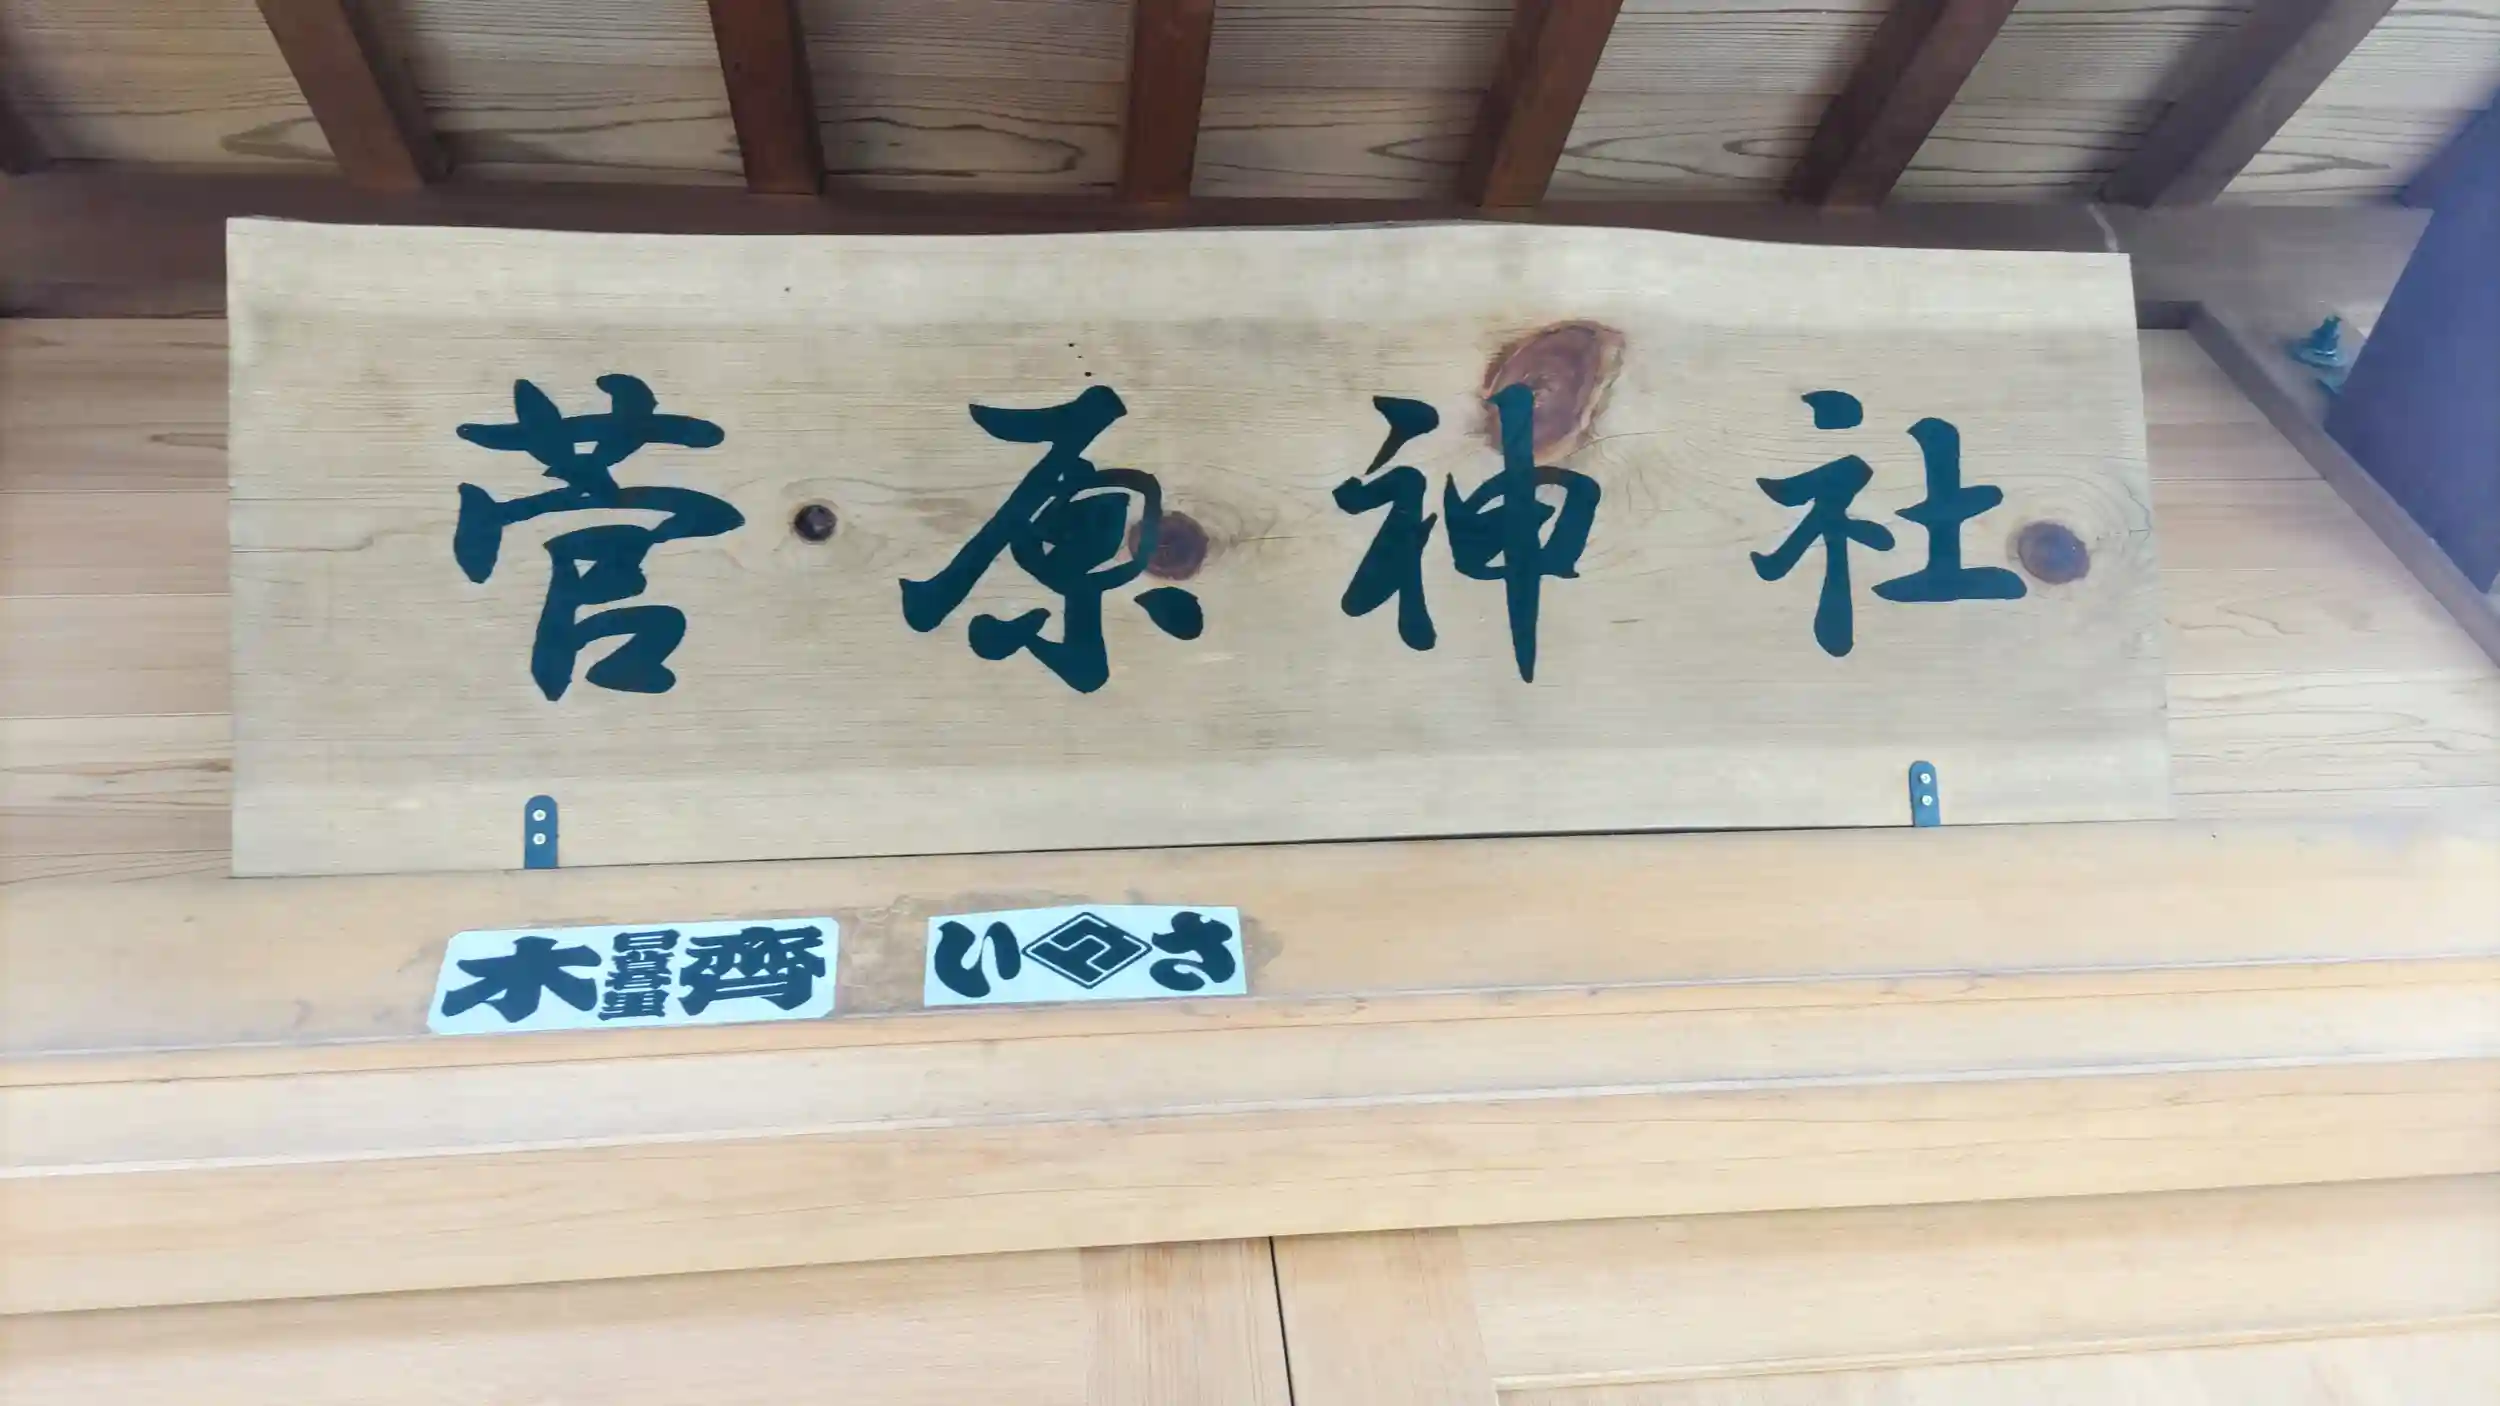 菅原神社
木 齊
い さ